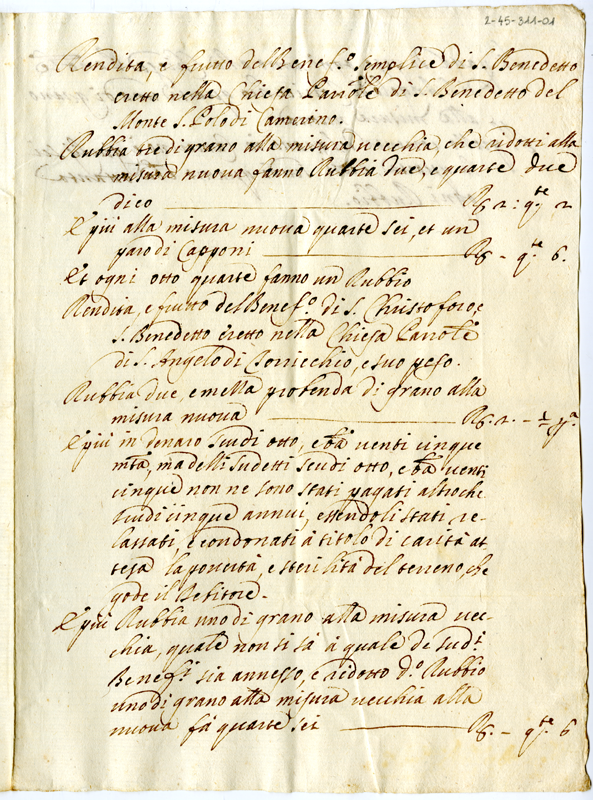 2-45-311-01
Rendita, e frutto del Benef.o Semplice di S. Benedetto
eretto nella Chiesa Parrōle di S. Benedetto del
Monte S. Polo di Camerino.
Rubbia tre di grano alla misura vecchia che ridotti alla
misura nuova fanno Rubbia due, e quarte due
dico — R. 2: q.te 2
E più alla misura nuova quarte sei, et un
paro di Capponi — R. – q.te 6.
Et ogni otto quarte fanno un Rubbio
Rendita, e frutto del Benef.o di S. Christoforo, e
S. Benedetto eretto nella Chiesa Parrōle
di S. Angelo di Torricchio, e suo peso.
Rubbia due, e mezza profenda di grano alla
misura nuova — R. 2. – 1/2
E più in denaro Scudi otto, e b̄a venti cinque
mtā, ma delli sudetti scudi otto, e b̄a venti
cinque non ne sono stati pagati altro che
scudi cinque annui, essendoli stati re-
lassati, e condonati à titolo di carità at-
tesa la povertà, e sterilità del terreno, che
gode il Retitore.
E più Rubbia uno di grano alla misura vec-
chia, quale non si sà à quale de sud.i
Benef.i sia annesso, e ridotto d.o Rubbio
uno di grano alla misura vecchia alla
nuova fà quarte sei — R. – q.te 6